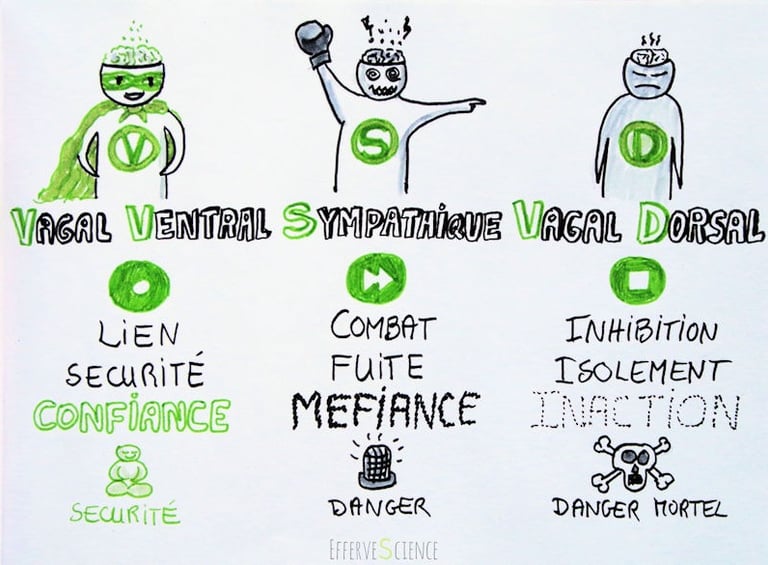 V
S
D
VAGAL VENTRAL
SYMPATHIQUE
VAGAL DORSAL
LiEN
SECURITÉ
CONFiANCE
SECURITÉ
COMBAT
FUITE
MEFiANCE
DANGER
INHIBITION
ISOLEMENT
INACTION
DANGER MORTEL
EFFERVESCIENCE